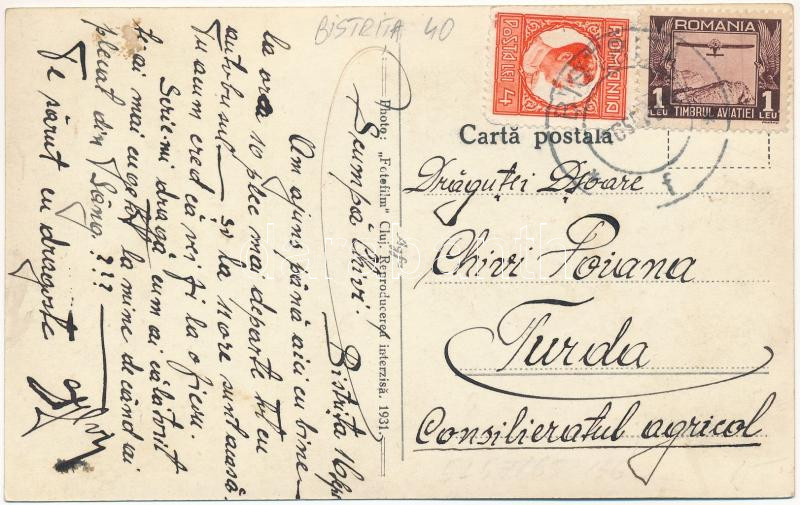 BISTRIȚA 40
POSTA LEI 4
ROMANIA
ROMANIA
1 LEU TIMBRUL AVIAȚIEI 1 LEU
Cartă postală
Photo: „Fotofilm" Cluj. Reproducerea interzisă. 1931
Drăguței Dșoare
Chivi Poiana
Turda
Consilieratul agricol
Bistrița 16
Scumpă Chivi.
Am ajuns până aici cu bine
la ora 10 plec mai departe tot cu
autobusul și la nore sunt acasă.
Tu acum cred că vei fi la oficiu.
Scrie-mi dragă cum ai călătorit
t-ai mai cugetat la mine decând ai
plecat din Sâng. ???
Te sărut cu dragoste